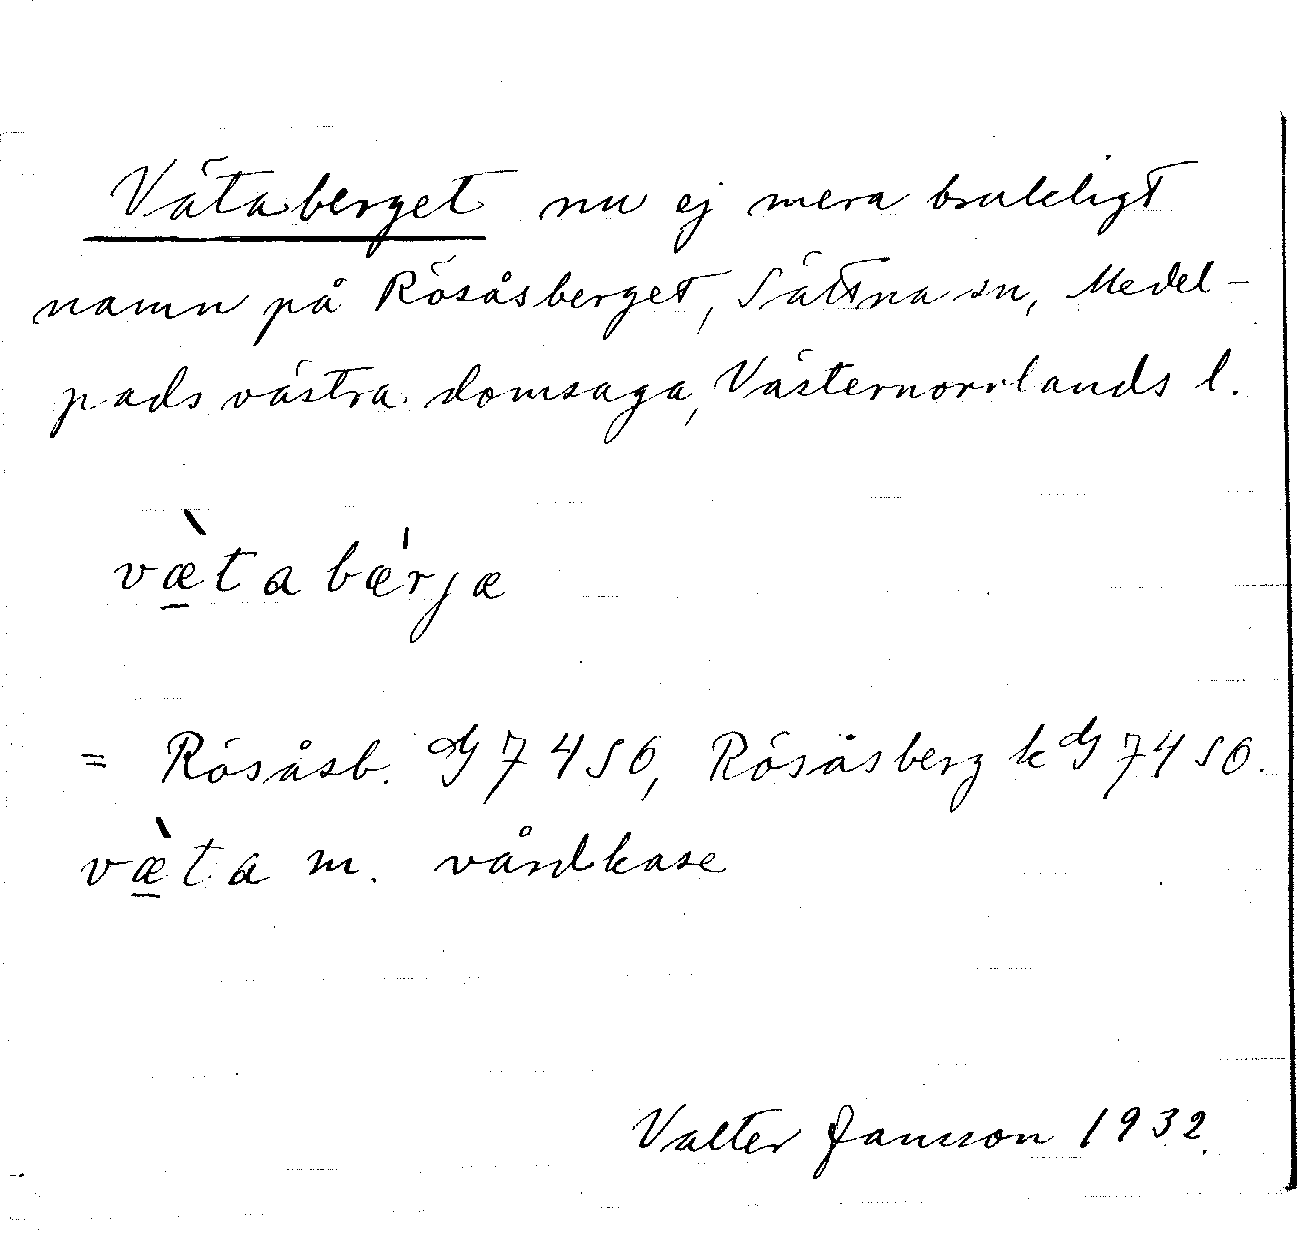 Vätaberget nu ej mera brukligt
namn på Rösåsberget, Sättna sn, Medel-
pads västra domsaga, Västernorrlands l.
væ̀ta bæ̍rjæ
= Rösåsb. G 7450, Rösåsberg k G 7450.
væ̀ta m. vårdkase
Valter Jansson 1932.